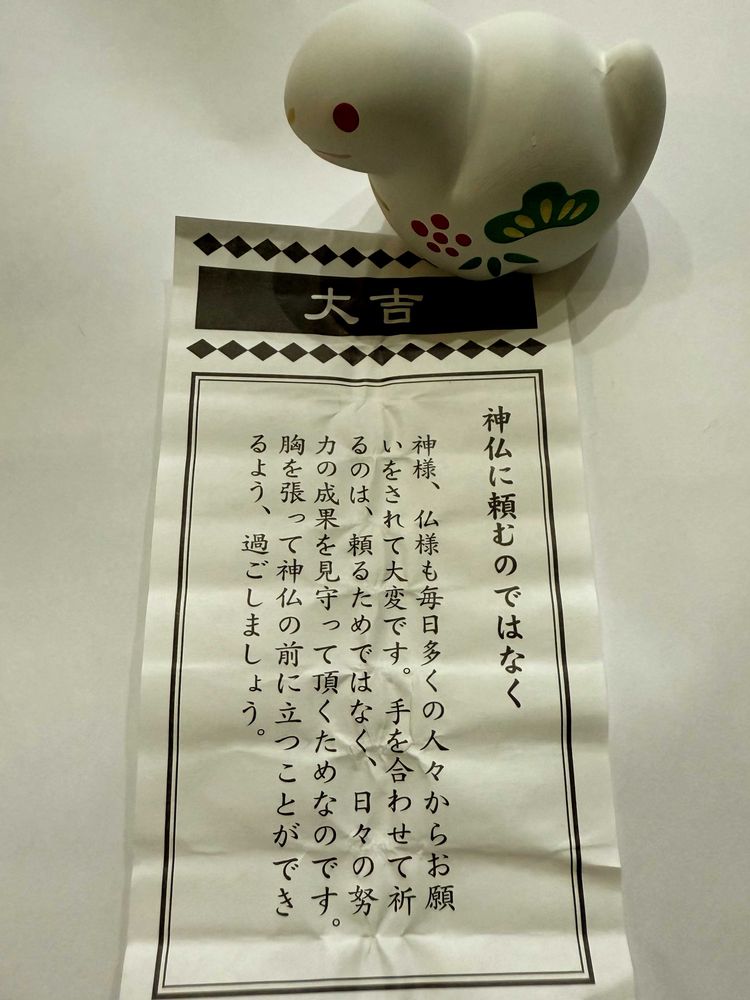 大吉
神仏に頼むのではなく
神様、仏様も毎日多くの人々からお願
いをされて大変です。手を合わせて祈
るのは、頼るためではなく、日々の努
力の成果を見守って頂くためなのです。
胸を張って神仏の前に立つことができ
るよう、過ごしましょう。